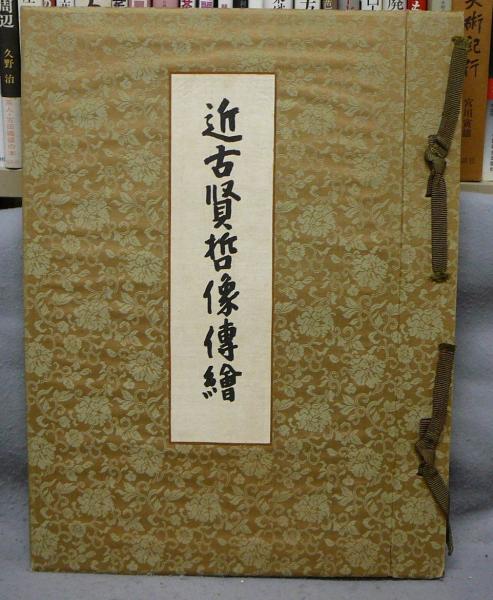 近古賢哲像傳繪
周辺
久野 治
美術紀行
宮川寅雄